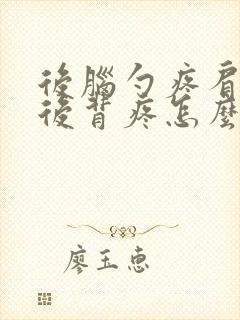 後腦勺疼肩
後背疼怎麼
廖玉惠